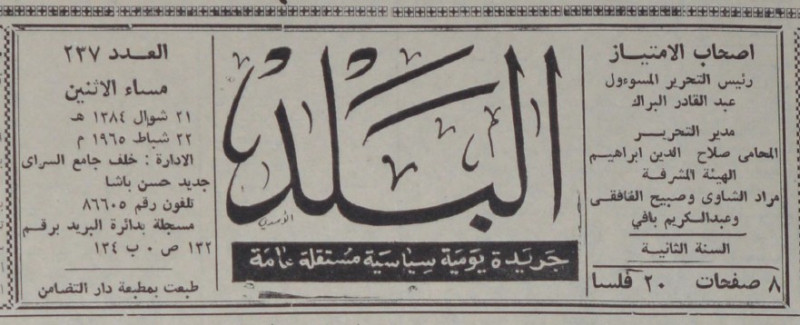 اصحاب الامتياز
رئيس التحرير المسوءول
عبد القادر البراك
مدير التحرير
المحامى صلاح الدين ابراهيم
الهيئة المشرفة
مراد الشاوى وصبيح الغافقى
وعبدالكريم بافي
السنة الثانية
٨ صفحات ٢٠ فلسا
البلد
جريدة يومية سياسية مستقلة عامة
العدد ٢٣٧
مساء الاثنين
٢١ شوال ١٣٨٤ هـ
٢٢ شباط ١٩٦٥ م
الادارة : خلف جامع السراى
جديد حسن باشا
تلفون رقم ٨٦٦٠٥
مسجلة بدائرة البريد برقم
١٣٢ ص ٠ ب ١٣٤
طبعت بمطبعة دار التضامن